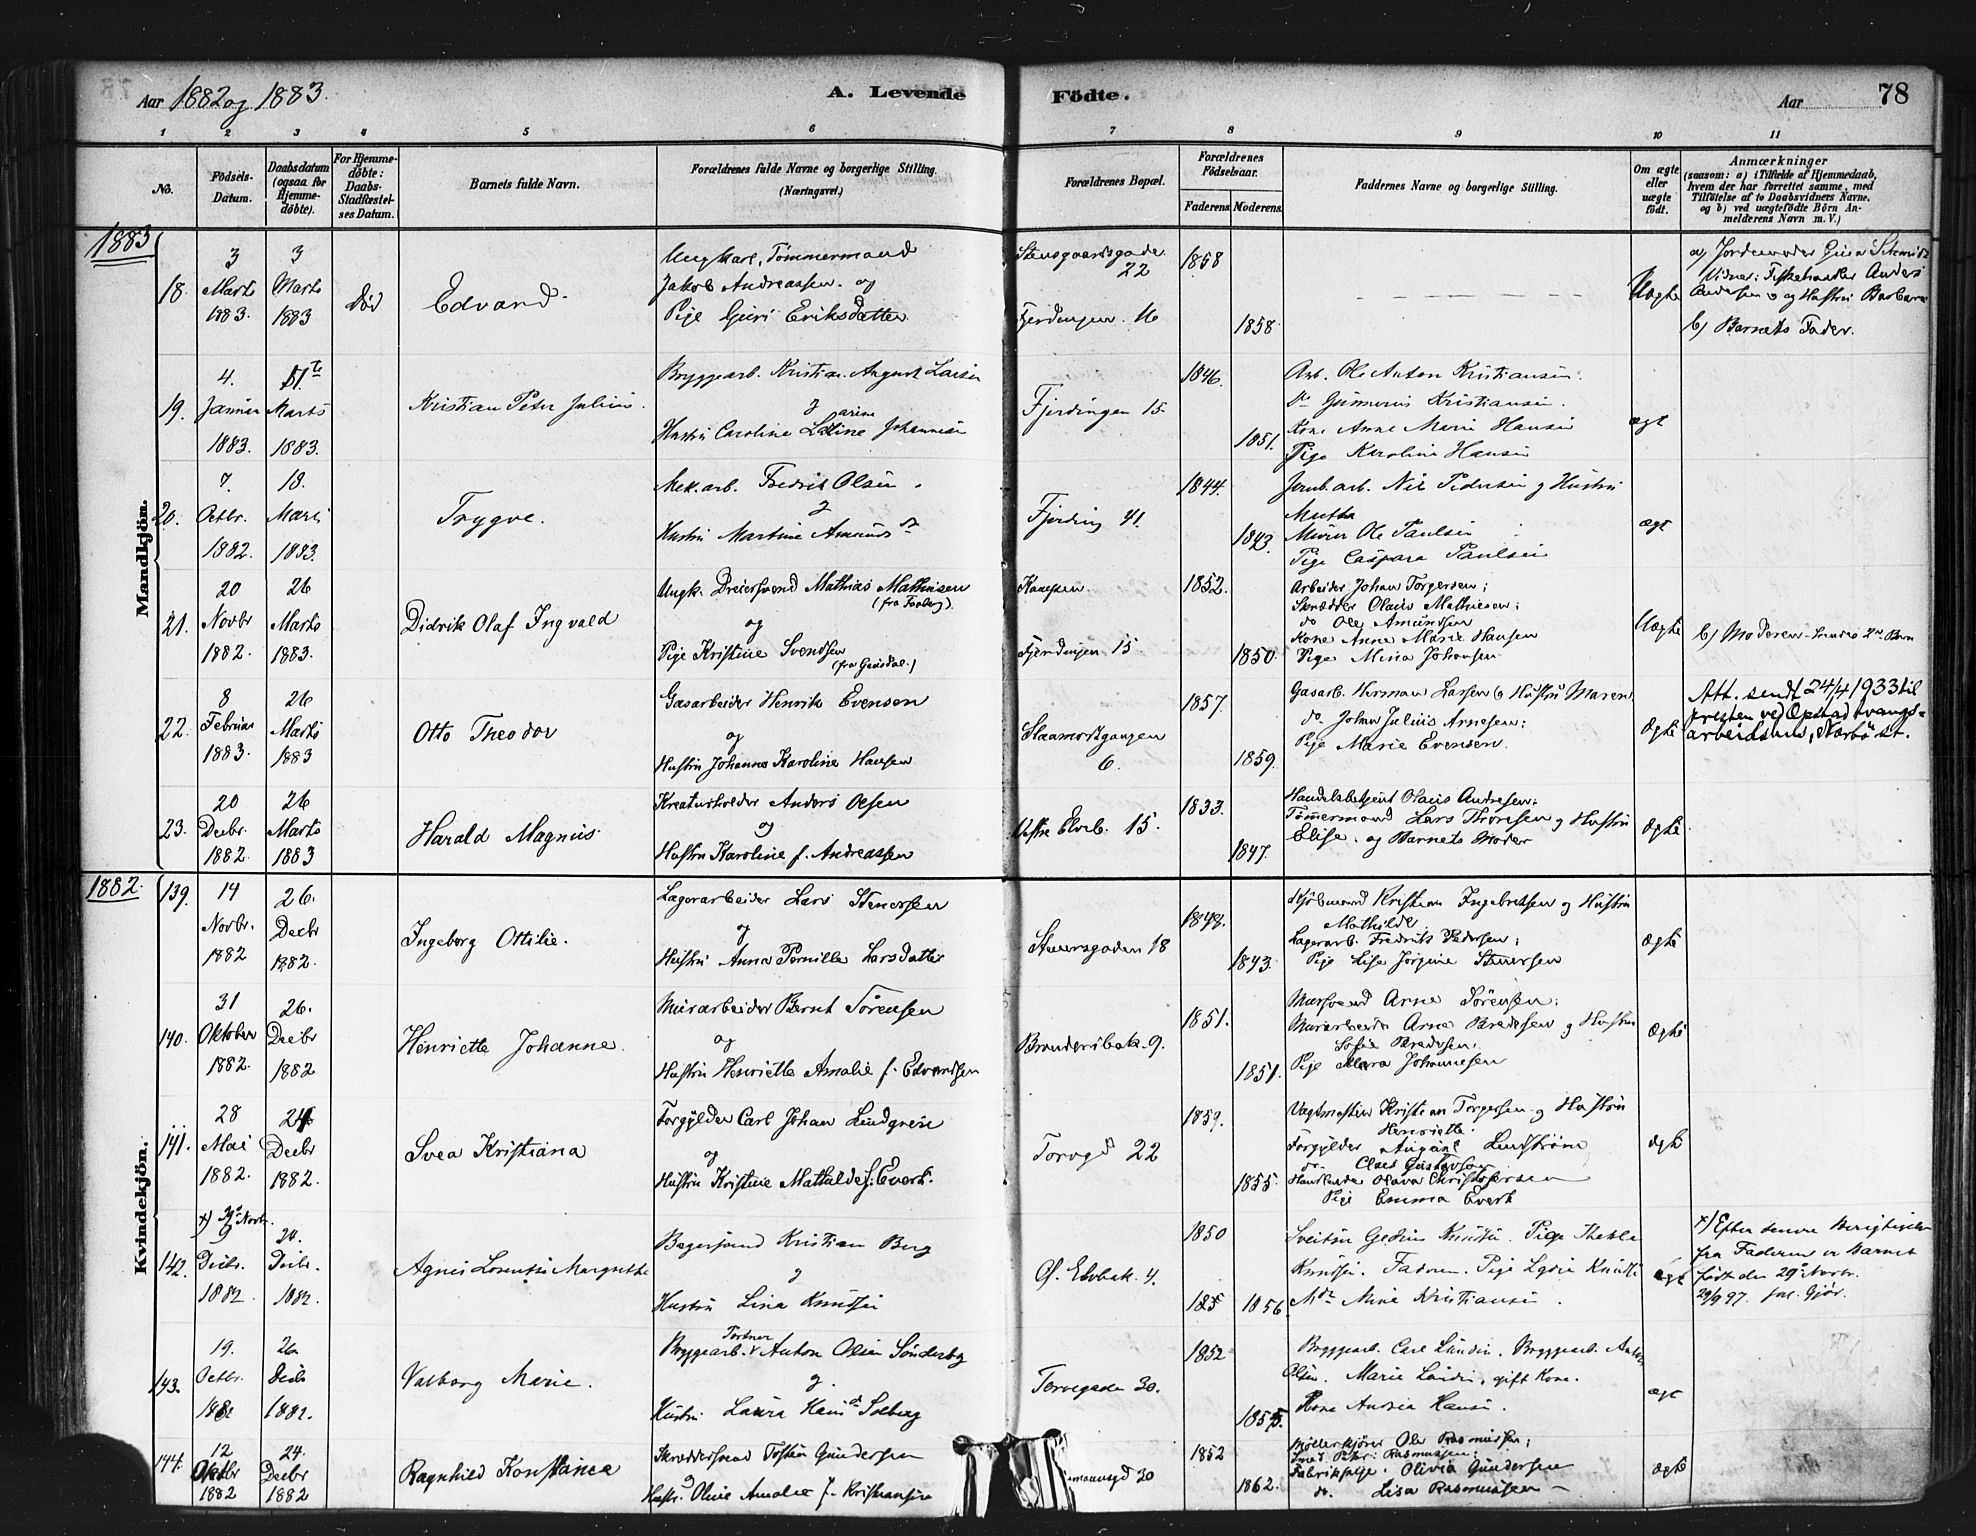 Aar 1882 og 1883.
A. Levende Födte.
Aar 78
1 2 3 4 5 6 7 8 9 10 11
No.
Födsels-Datum.
Daabsdatum (ogsaa for Hjemme-döbte).
For Hjemme-döbte: Daabs-Stadfæstel-ses Datum.
Barnets fulde Navn.
Forældrenes fulde Navne og borgerlige Stilling. (Næringsvei.)
Forældrenes Bopæl.
Forældrenes Födselsaar.
Faderens Moderens
Faddernes Navne og borgerlige Stilling.
Om ægte eller uægte födt.
Anmærkninger
(saasom: a) i Tilfælde af Hjemmedaab, hvem der har forrettet samme, med Tilföielse af to Daabsvidners Navne, og b) ved uægtefödte Börn An-melderens Navn m. V.)
Mandkjön.
1883
18. 3 Marts 1883. 3 Marts 1883 Död
Edvard
Ungkarl, Tömmermand
Jakob Andreassen og
Pige Guri Eriksdatter
Stensgaardsgade 22
Fjerdingen 16
1858
1858.
Uægte
a) Jordemoder
Vidner: Anders
Andersen og Hustru Barbara
b) Barnets Fader.
19. 4. Januar 1883. Marts 1883.
Kristian Peter Julius.
Bryggearb. Kristian August Larsen
Hustru Caroline Johannesen
Fjerdingen 15.
1846.
1851.
Arb. Ole Anton Kristiansen.
Kristiansen.
Kone Anne Marie Hansen
Pige Karoline Hansen
ægt
20. 7. Octbr. 1882. 18. Marts 1883.
Trygve.
Mek. arb. Fredrik Olsen.
Hustru Martine Amunds
Fjerding 41.
1844.
1843.
Pedersen og Hustru
Murer Ole Paulsen
Pige Caspara Paulsen
ægt
21. 20 Novbr 1882. 26 Marts 1883.
Didrik Olaf Ingvald
Ungk. Dreiersvend Mathias Mathisen
(fra Faaberg).
og
Pige Kristine Svendsen
Fjerdingen 15.
1852.
1850.
Arbeider Johan Torgersen;
Skrædder Olaus Mathiesen;
do Ole Amundsen
Kone Anne Marie Hansen
Pige Mina Johansen
Uægte
b) Moderen - hendes 2det Barn
22. 8 Februar 1883. 26 Marts 1883
Otto Theodor
Gasarbeider Henrik Evensen
og
Hustru Johanne Karoline Hansen
6.
1857.
1859.
Gasarb. Herman Larsen og Hustru Maren
do. Johan Julius Arnesen;
Pige Marie Evensen.
Ægte
Att. sendt 24/4 1933 til
presten ved Opstad tvangs-
arbeidshus, Nærbö st.
23. 20 Decbr. 1882. 26 Marts 1883
Harald Magnus.
Kreaturholder Anders Olsen
og
Hustru Karoline f. Andreassen
Vestre Elvb. 15.
1833.
1847.
Handelsbetjent Olaus Andresen;
Tömmermand Lars Thoresen og Hustru
Elise. og Barnets Moder
Ægte
Kvindekjön.
1882.
139. 14 Novbr. 1882 26. Decbr 1882.
Ingeborg Ottilie.
Lagerarbeider Lars Stenersen
og
Hustru Anna Pernille Larsdatter
Stenersgaden 18
1848.
1843.
Kjöbmand Kristian Ingebretsen og Hustru
Mathilde
Lagerarb. Fredrik Pedersen;
Pige Lise Jörgine Stenersen
Ægte
140. 31 Oktober 1882. 26. Decbr 1882
Henriette Johanne.
Murarbeider Bernt Sörensen
og
Hustru Henriette Amalie f. Edvardsen
Brenneribak. 9.
1851.
1851.
Mursvend Arne Sörensen;
Murarbeider Arne Bredesen og Hustru
Sofie Bredesen.
Pige Johannesen
Ægte
141. 28 Mai 1882. 24 Decbr 1882.
Svea Kristiana
Forgylder Carl Johan Lindgren
og
Hustru Kristine Mathilde f. Evert.
Torvgd 22
1859.
1855.
Vagtmester Kristian Torgersen og Hustru
Henriette.
Forgylder August Lindström
do. Claes Gustavsen
Handlende Olava Christofersen
Pige Emma Evert
ægte
142. x) 29de Novbr. 9 Decbr. 1882 Decbr. 1882.
Agnes Lorentze Margrethe
Bagersvend Kristian Berg
Hustru Lina Knudsen
Ø. Elvbak. 4.
1850
185 1856
Knudsen. Pige Thekla
Knudsen. Faderen. Pige Lydia Knudsen
Kristiansen.
ægt
x) Efter senere Berigtigelse
fra Faderen er Barnet
födt den 29de Novbr.
29/9 97.
143. 19. Octbr. 1882 26 Decbr 1882.
Valborg Marie.
Bryggearb. Anton Olsen Sönderby
Hustru Laura Hansd. Solberg
Torvegaden 30.
1852
1855.
Bryggearb. Carl Lundin. Bryggearb. Anton
Olsen. Marie Lundin, gift Kone.
Kone Hansen.
ægt
144. 12 Oktbr 1882 24. Decbr 1882
Ragnhild Konstance
Skræddersvend Gundersen
Hustru Oline Amalie f. Kristiansen
30
1852
1862.
Möllerkjörer Ole Rasmussen;
Smed Peter Rasmussen;
Fabrikpige. Olivia Gundersen
do. Lisa Rasmussen
Ægte